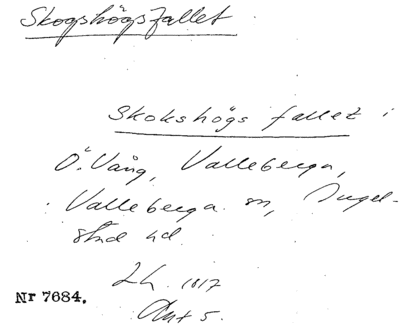 Skogshögsfallet
Skokshögs fallet i
Ö. Vång, Valleberga,
Valleberga sn, Ingel-
stad hd.
Lh. 1817
Akt 5.
Nr 7684.